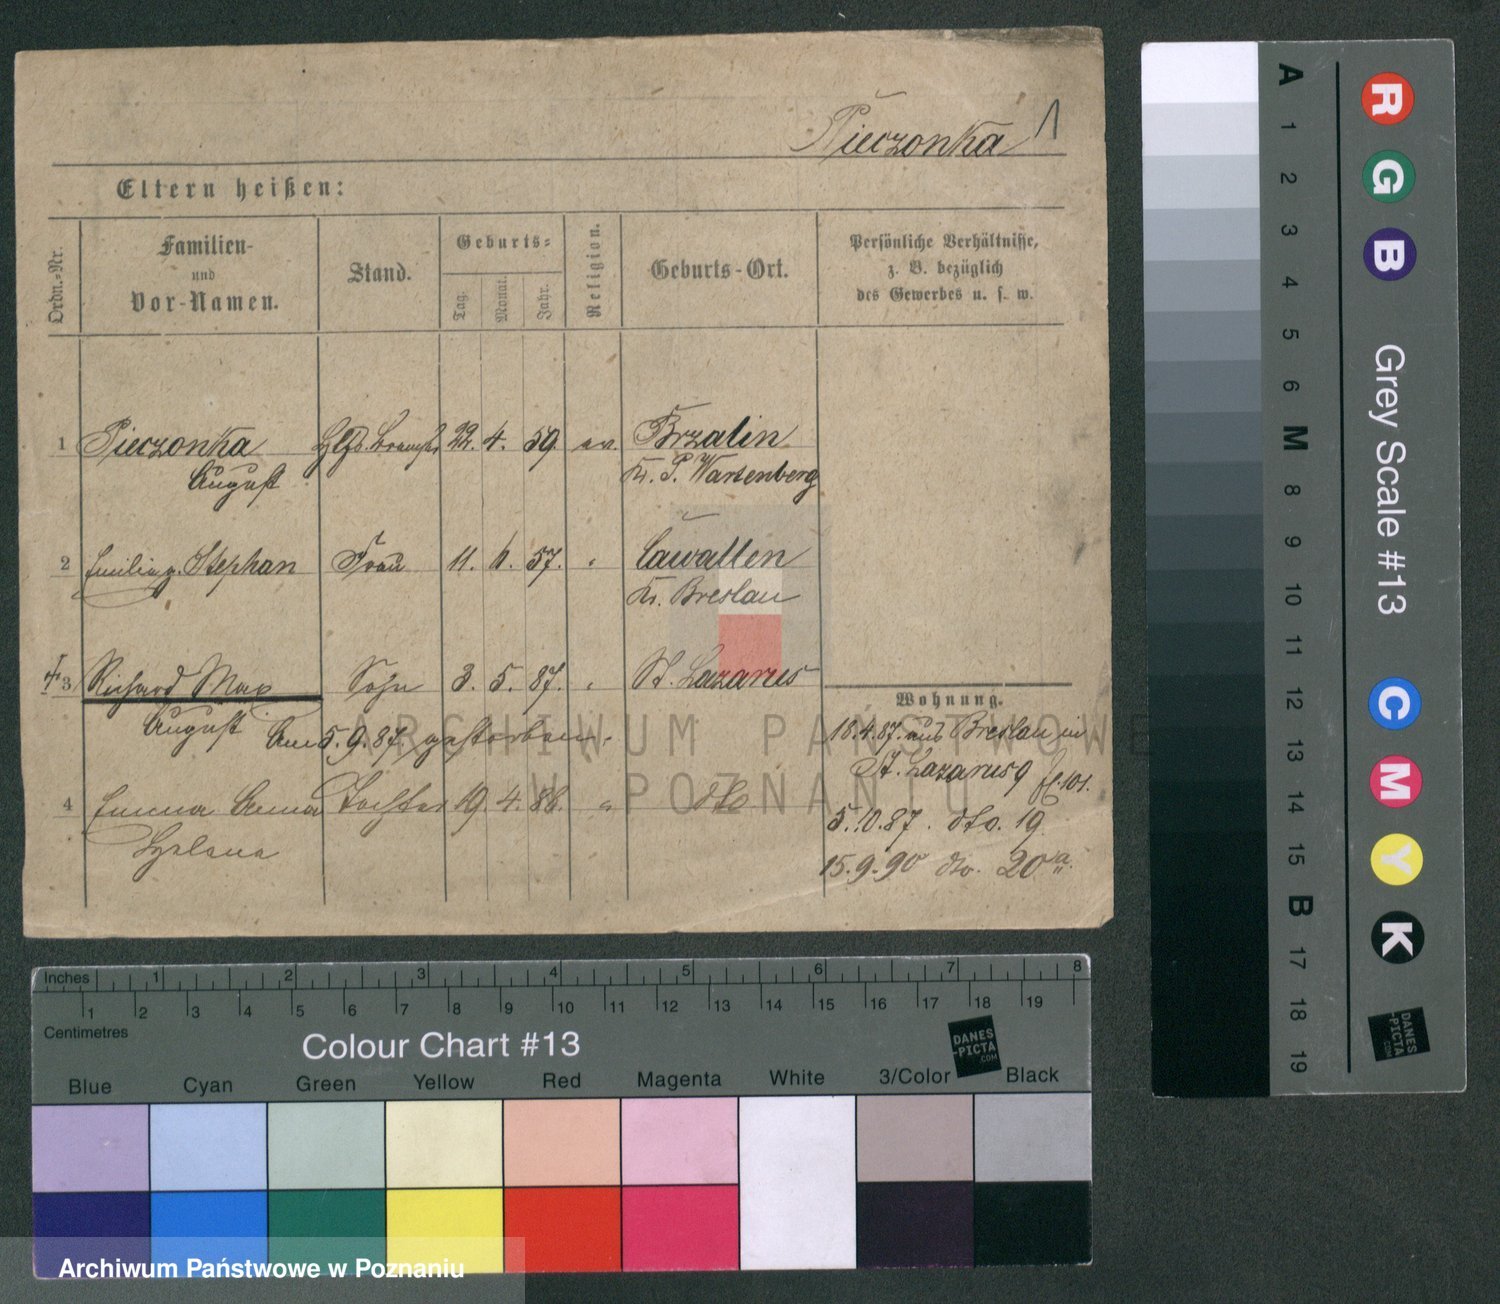 Pieczonka
Eltern heißen:
Ordn.-Nr.
Familien-
und
Vor-Namen.
Stand.
Geburts-
Tag.
Monat.
Jahr.
Religion.
Geburts-Ort.
Persönliche Verhältnisse,
z. B. bezüglich
des Gewerbes u. s. w.
1 Pieczonka 22. 4. 59. ev. Brzalin
August Kr. P. Wartenberg
2 Emilie g. Stephan Frau 11. 6. 57. " Cawallen
Kr. Breslau
3 Richard Max Sohn 3. 5. 87. " St. Lazarus
August Am 5.9.87 gestorben.
4 Emma Anna Tochter 19. 4. 88. " dto
Helene
Wohnung.
18.4.87. aus Breslau in
St. Lazarus 9
5.10.87. dto. 19.
15.9.90 dto. 20a.
ARCHIWUM PAŃSTWOWE
W POZNANIU
Inches 1 2 3 4 5 6 7 8
1 2 3 4 5 6 7 8 9 10 11 12 13 14 15 16 17 18 19
Centimetres
Colour Chart #13
DANES
-PICTA
.COM
Blue Cyan Green Yellow Red Magenta White 3/Color Black
Archiwum Państwowe w Poznaniu
A 1 2 3 4 5 6 M 8 9 10 11 12 13 14 15 B 17 18 19
R G B
Grey Scale #13
C M Y K
DANES
-PICTA
.COM